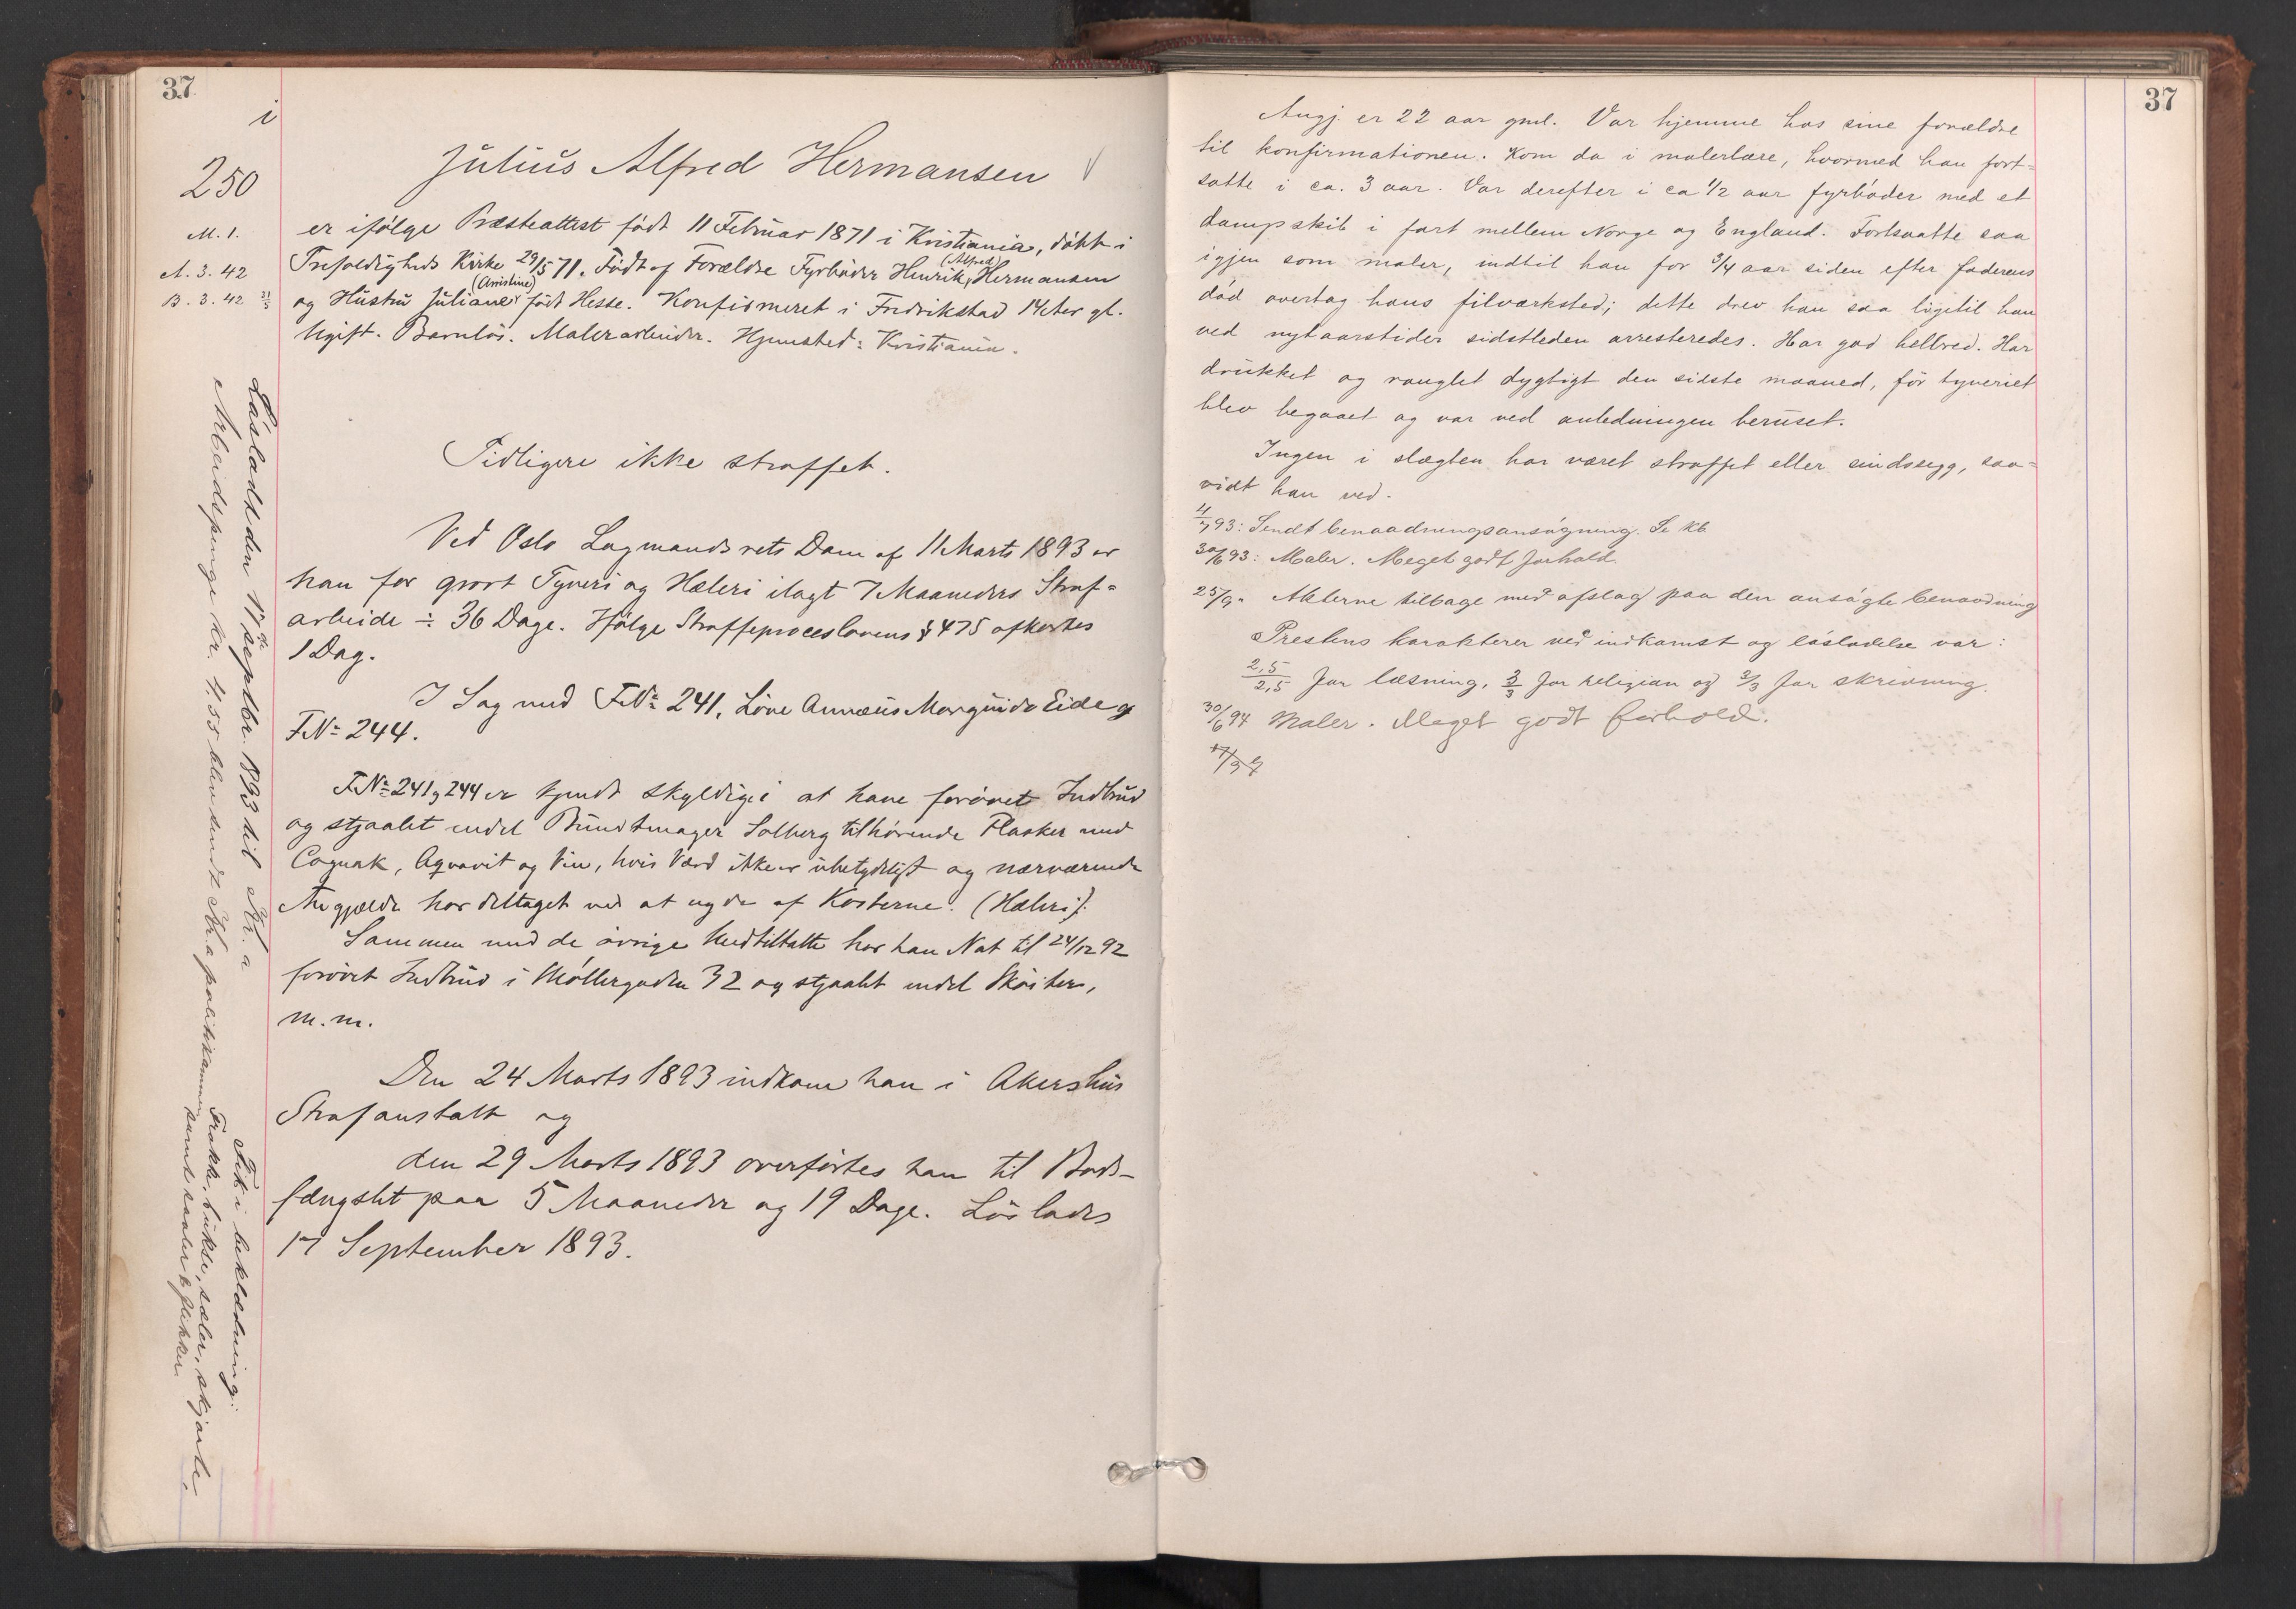 37
i
250
M. 1.
A. 3. 42
B. 3. 42
Julius Alfred Hermansen
er ifölge Præsteattest födt 11 Februar 1871 i Kristiania, döbt i
Trefoldigheds Kirke 29/5 71. Födt af Forældre Fyrböder Henrik (Alfred) Hermansen
og Hustru Juliane (Amistine) födt Hesse. Konfirmeret i Fredrikstad 14 Aar gl.
Ugift. Barnlös. Malerarbeider. Hjemsted: Kristiania.
Tidligere ikke straffet.
Ved Oslo Lagmandsrets Dom af 11 Marts 1893 er
han for grovt Tyveri og Hæleri ilagt 7 Maaneders Straf=
arbeide ÷ 36 Dage. Ifölge Straffeproceslovens § 475 afkortes
1 Dag.
I Sag med F.N: 241, Löve Annæus Eide og
F.N: 244.
F.N: 241 og 244 er kjendt skyldige i at have forövet Indbrud
og stjaalet endel Bundtmager Solberg tilhörende Flasker med
Cognak, Aqvavit og Vin, hvis Værd ikke er ubetydeligt og nærværende
Angjældte har deltaget ved at nyde af Kosterne. (Hæleri).
Sammen med de övrige Medtiltalte har han Nat til 24/12 92
forövet Indbrud i Möllergaden 32 og stjaalet endel Sköiter,
m. m.
Den 24 Marts 1893 indkom han i Akershus
Strafanstalt og
den 29 Marts 1893 overförtes han til Bods-
fængslet paa 5 Maaneder og 19 Dage. Löslades
17 September 1893.
Lösladd den 17de septbr. 1893 til Kr.a
Arbeidspenge kr. 4,55 blev sendt Kr.a politikammer
Fik i beklædning:
Frakk, bukse, sæler, skjorte,
samt saaler & flikker
37
Angj. er 22 aar gml. Var hjemme hos sine forældre
til konfirmationen. Kom da i malerlære, hvormed han fort=
satte i ca. 3 aar. Var derefter i ca 1/2 aar fyrböder med et
dampskib i fart mellem Norge og England. Fortsatte saa
igjen som maler, indtil han for 3/4 aar siden efter faderens
död overtog hans filværksted; dette drev han saa ligetil han
ved nytaarstider sidstleden arresteredes. Har god helbred. Har
drukket og ranglet dygtigt den sidste maaned, för tyveriet
blev begaaet og var ved anledningen beruset.
Ingen i slægten har været straffet eller sindssyg, saa=
vidt han ved.
4/7 93: Sendt benaadningsansögning. Se kb.
30/6 93: Maler. Meget godt forhold.
25/9 " Akterne tilbage med afslag paa den ansögte benaadning
Prestens karakterer ved indkomst og lösladelse var:
2,5/2,5 for læsning, 3/3 for religion og 3/3 for skrivning.
30/6 94 Maler. Meget godt forhold.